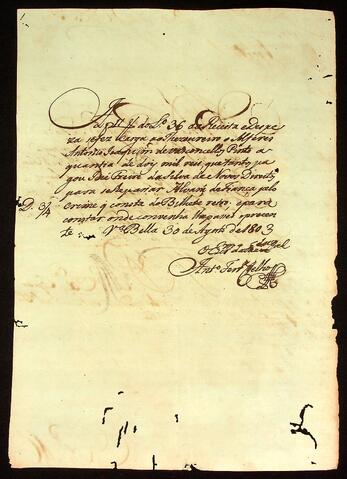 A f 4 do L.º 36 de Receita e Despe
za se fez Carga ao Thezoureiro o Alferes
Antonio Joaquim de Vasconcellos Pinto a
quantia de dois mil reis, que tanto pa
gou José Freire da Silva de Novos Direitos
para se lhe passar Alvará de Fiança pelo
Crime q consta do Bilhete retro; e para
constar onde convenha lhe passei o prezen
te. V.ª Bella 30 de Agosto de 1803
D. 3/4
O Es da
Ant.º Ferr.ª Velho